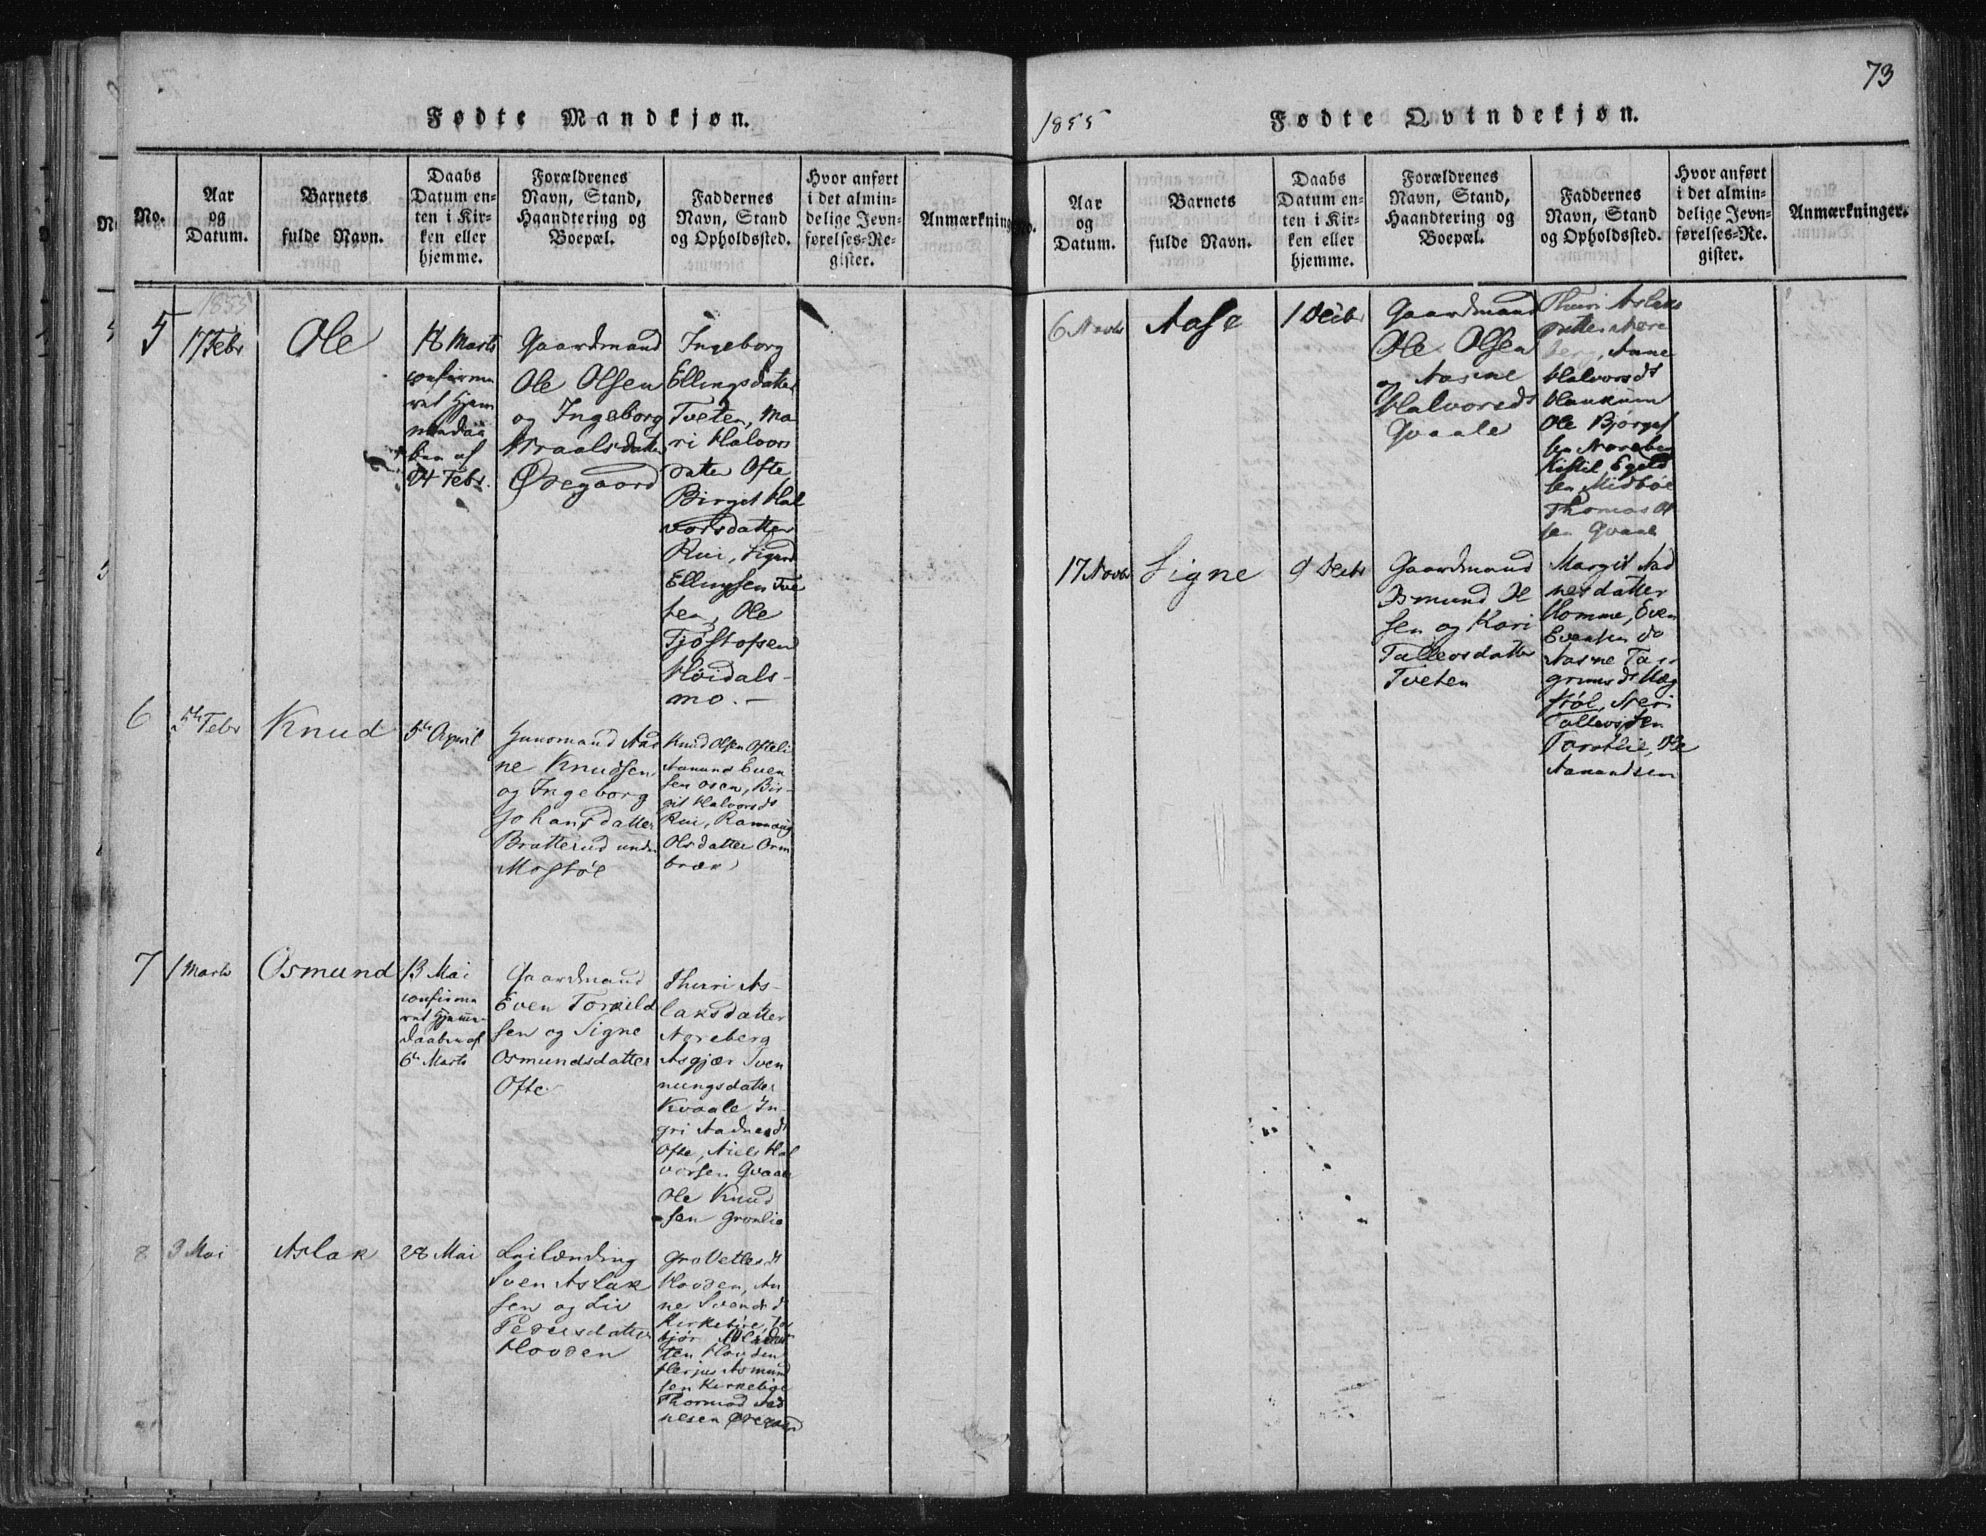 73
Fødte Mandkjøn.
No.
Aar
og
Datum.
Barnets
fulde Navn.
Daabs
Datum en-
ten i Kir-
ken eller
hjemme.
Forældrenes
Navn, Stand,
Haandtering og
Boepæl.
Faddernes
Navn, Stand
og Opholdssted.
Hvor anført
i det almin-
delige Jevn-
førelses-Re-
gister.
Anmærkninger
1855
5
17 Febr
Ole
18 Marts
confirme
ret Hjem
mendaa
ben af
24 Febr.
Gaardmand
Ole Olsen
og Ingeborg
Wraalsdatter
Øvegaard
Ingeborg
Ellingsdatter
Tveten, Ma
ri Halvors
datter Ofte
Birgit Hal
vorsdatter
Rui, Sigurd
Ellingsen Tve
ten, Ole
Tjøstofsen
Høidals-
mo. -
6
5te Febr
Knud
5te April
Huusmand Aad
ne Knudsen
og Ingeborg
Johansdatter
Bratterud under
Mostøl
Knud Olsen Ofteli
Aamund Even
sen Osen, Bir-
git Halvorsdt
Rui, Rannaug
Olsdatter Orm
bræk
7
1 Marts
Osmund
13 Mai
confirme
ret Hjemme-
daaben af
6te Marts
Gaardmand
Even Torkild
sen og Signe
Osmundsdatter
Ofte.
Thuri As-
laksdatter
Noreberg
Asgjær Sven
nungsdatter
Kvaale, In-
gri Aadnesdt
Ofte, Niels Hal
vorsen Qvaale
Ole Knud
sen Grønlie
8
3 Mai
Aslak
28 Mai
Leilænding
Sven Aslak
sen og Liv
Pedersdatter
Hovden
Gro Vetlesdt
Hovden, An
ne Svensd
Kirkebøe
Hovden
Herjus Asmund
sen
Thormod Aad
nesen
1855
Fødte Qvindekjøn.
No.
Aar
og
Datum.
Barnets
fulde Navn.
Daabs
Datum en-
ten i Kir-
ken eller
hjemme.
Forældrenes
Navn, Stand,
Haandtering og
Boepæl.
Faddernes
Navn, Stand
og Opholdssted.
Hvor anført
i det almin-
delige Jevn-
førelses-Re-
gister.
Anmærkninger.
6 Novbr
Aase
1 Decbr
Gaardmand
Ole Olsen
og Aasne
Halvorsdt
Qvaale
Thuri Aslaks
datter Nore
berg, Anne
Halvorsdt
Haukum
Ole Bjørgul
sen Noreberg
Kittil Egeld
sen Midbøe
Thomas Ol
sen Qvaale
17 Novbr
Signe
9 Decbr
Gaardmand
Osmund Ol
sen og Kari
Tallevsdatter
Tveten
Margit Aad
nesdatter
Homme, Even
Evensen do
Aasne Tar-
grimsdt Hæg
støl, Neri
Tallevsen
Torvlie, Ole
Aamundsen